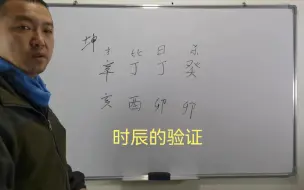 坤 才 比 日 杀
辛 丁 丁 癸
亥 酉 卯 卯
时辰的验证